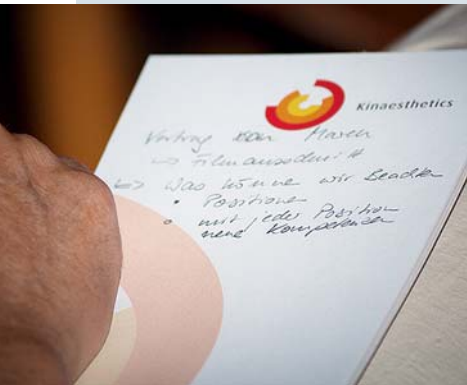 Kinaesthetics
Vortrag von Maren
↳ Filmausschnitt
↳ Was könne wir beachten
• Positionen
• mit jeder Position
neue Kompetenzen